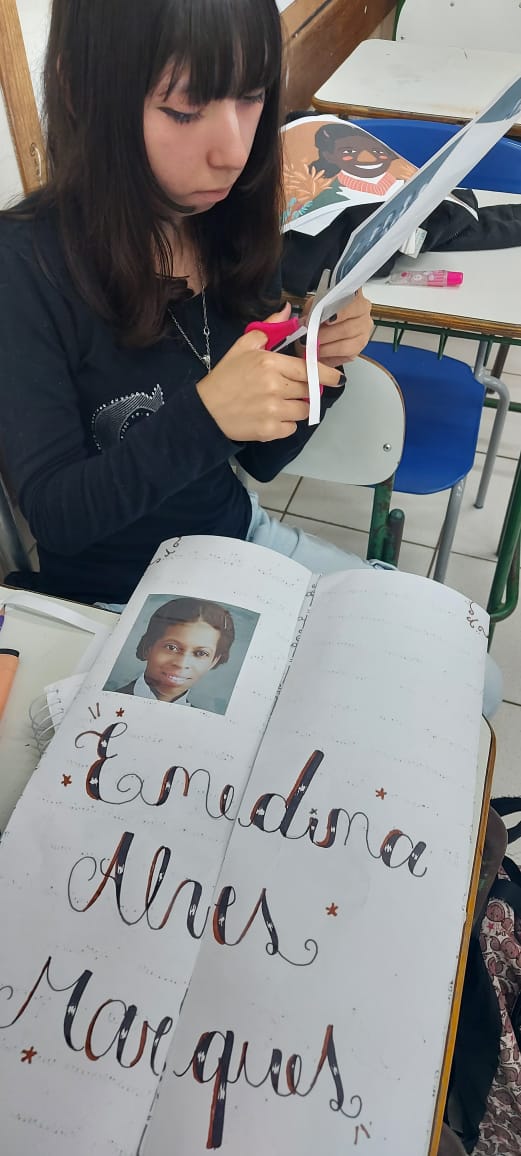 Emedina
Alves
Marques